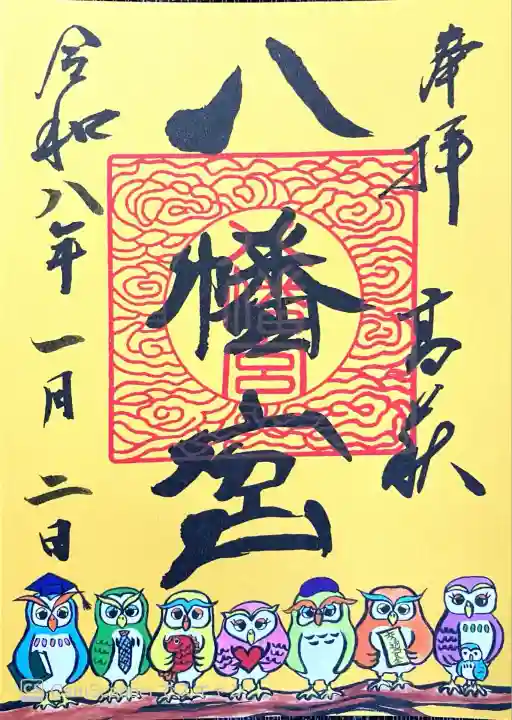 奉拝 高萩
八幡宮
令和八年一月二日